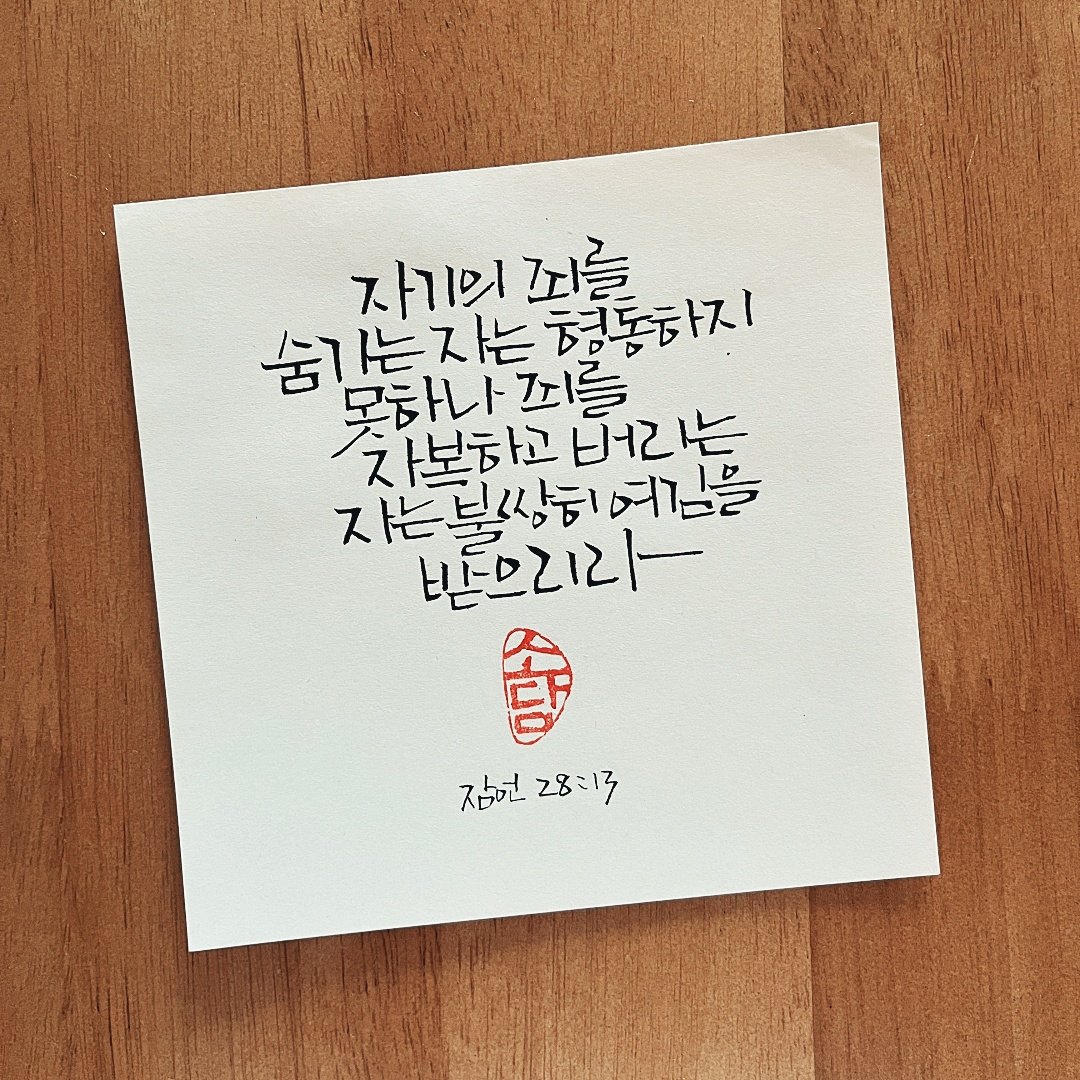 자기의 죄를
숨기는 자는 형통하지
못하나 죄를
자복하고 버리는
자는 불쌍히 여김을
받으리라
소담
잠언 28:13